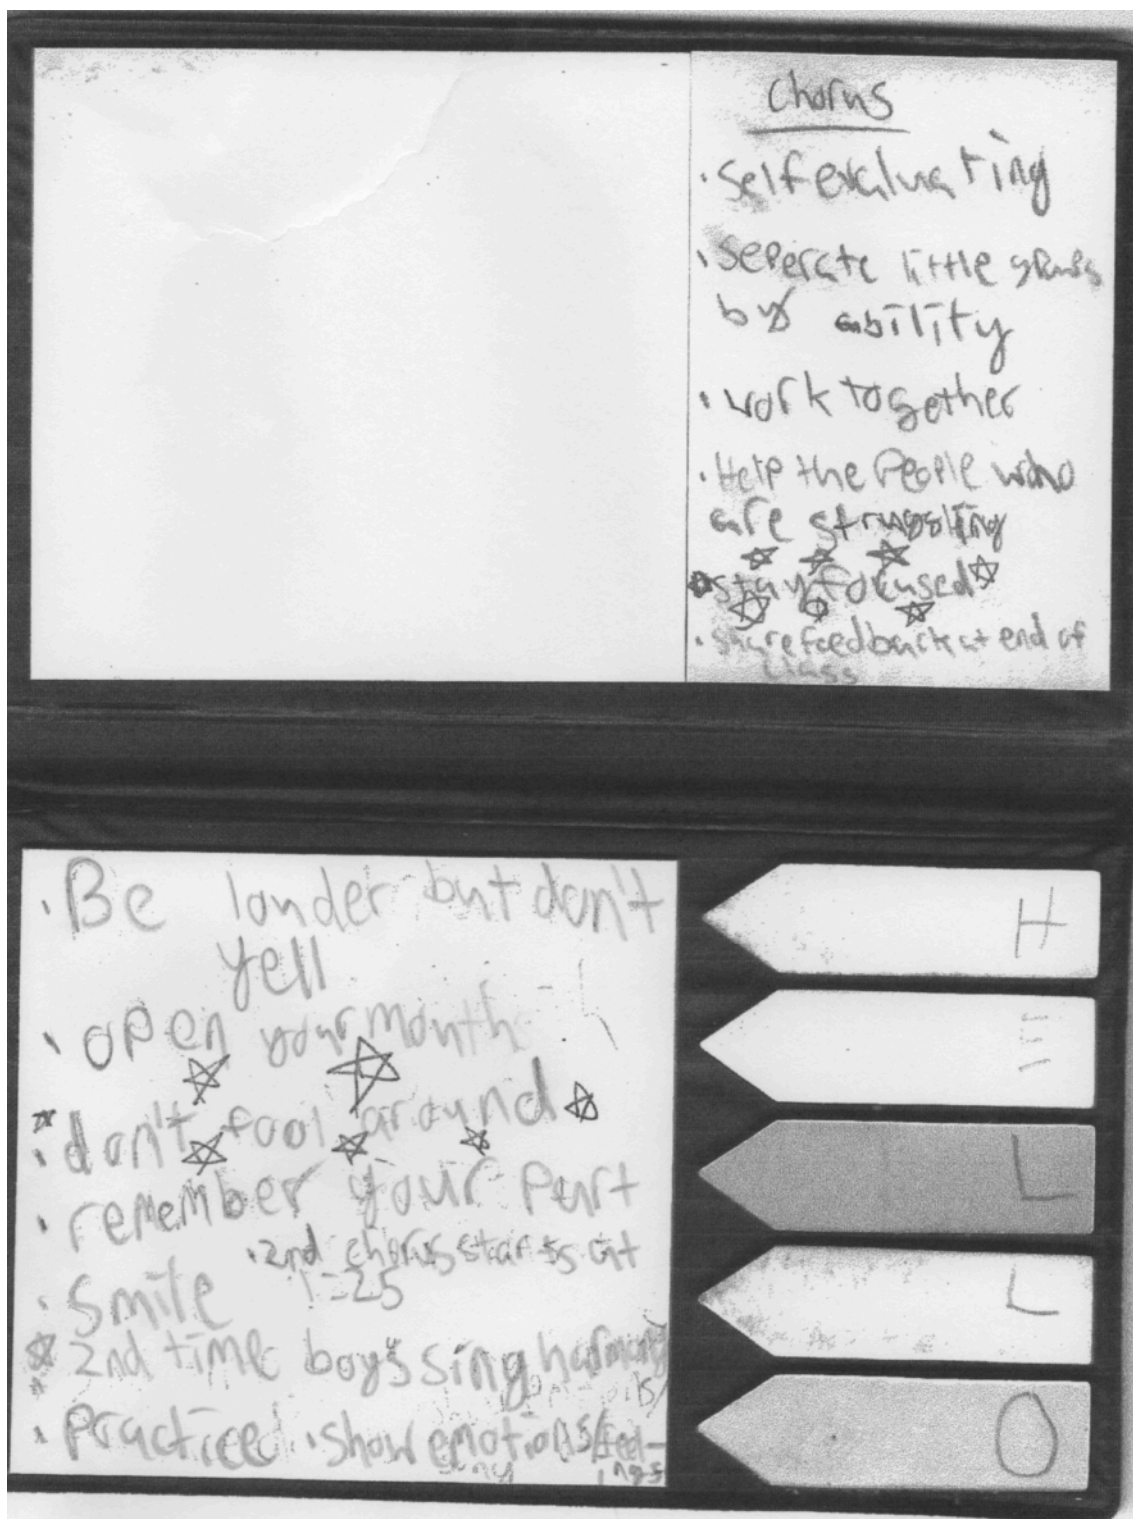 Chorus
• self evaluating
• seperate little groups
by ability
• work together
• Help the People who
are struggling
stay focused
• share feedback at end of
class
• Be louder but don't
yell
• open your mouth
• don't fool around
• remember your part
• 2nd chorus starts at
• smile 1=25
2nd time boys sing harmony
• Practiced • show emotions/feel-
ings
H
E
L
L
O